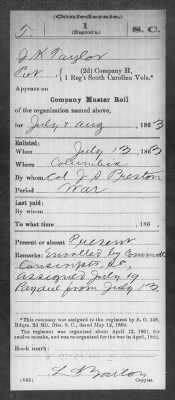 (Confederate.)
T. 1 S. C.
(Hagood's.)
J H Taylor
Pvt. { (2d) Company H,
1 Reg't South Carolina Vols.*
Appears on
Company Muster Roll
of the organization named above,
for July & Aug, 1863
Enlisted:
When July 13 1863
Where Columbia
By whom Col J S Preston
Period War
Last paid:
By whom
To what time , 186 .
Present or absent Present
Remarks: Enrolled by
Conscripts, SC,
assigned July 19
Paydue from July 13
*This company was assigned to the regiment by S. O. 248,
Hdqrs. 2d Mil. Dist. S. C., dated May 12, 1862.
The organization was organized about April 12, 1861, for
twelve months, and was re-organized for the war in April, 1862.
Book mark:
Barton
(642) Copyist.